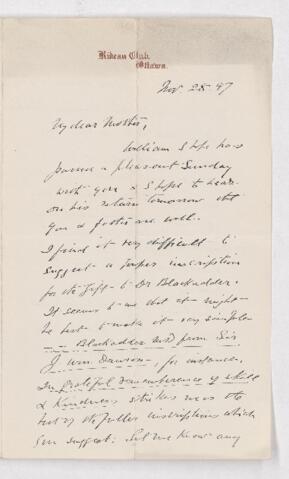 Rideau Club,
Ottawa.
Nov. 28 '97
My dear Mother,
William I hope has
passed a pleasant Sunday
with you & I hope to hear
on his return tomorrow that
you & father are well.
I find it very difficult to
suggest a proper inscription
for the gift to Dr Blackader.
It seems to me that it might
be best to make it very simple
Blackader M.D. from Sir
J. Wm. Dawson for instance.
In grateful remembrance of skill
& kindness strikes me as the
best of the fuller inscriptions which
you suggest. Let me know any